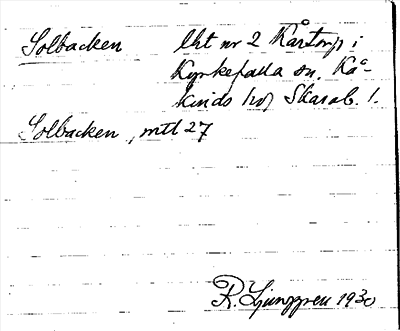 Solbacken lht nr 2 Kårtorp i
Kyrkefalla sn, Kå-
kinds hd, Skarab. l.
Solbacken, mtl 27
R. Ljunggren 1930